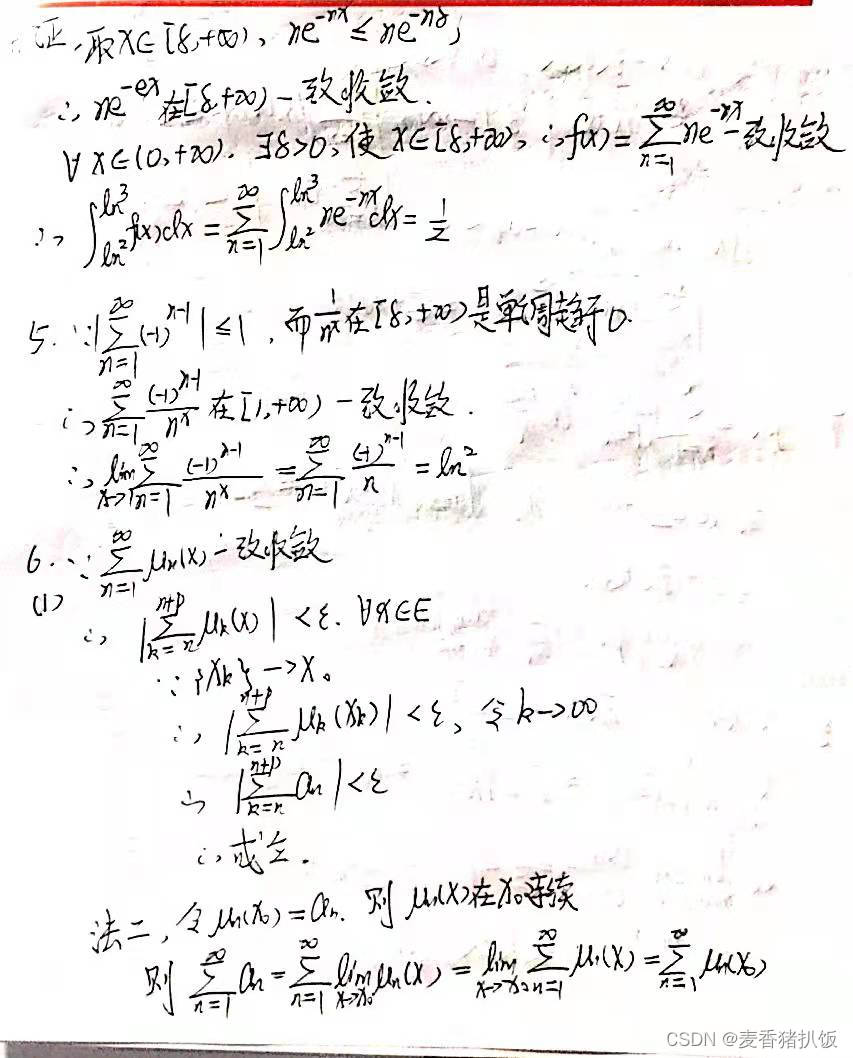 证,取x∈[δ,+∞), ne^{-nx} ≤ ne^{-nδ},
∴ ne^{-ex} 在[δ,+∞)一致收敛.
∀x∈(0,+∞). ∃δ>0,使x∈[δ,+∞), ∴f(x)=∑_{n=1}^{∞} ne^{-nx}一致收敛
∴ ∫_{ln^2}^{ln^3} f(x)dx = ∑_{n=1}^{∞} ∫_{ln^2}^{ln^3} ne^{-nx}dx = 1/2
5. ∵|∑_{n=1}^{∞}(-1)^{n-1}| ≤ 1, 而 1/n^x 在[δ,+∞)是单调趋于0.
∴ ∑_{n=1}^{∞} (-1)^{n-1}/n^x 在[1,+∞)一致收敛.
∴ lim_{x→1} ∑_{n=1}^{∞} (-1)^{n-1}/n^x = ∑_{n=1}^{∞} (-1)^{n-1}/n = ln^2
6. ∵ ∑_{n=1}^{∞} μ_n(x) 一致收敛
(1)
∴ |∑_{k=n}^{n+p} μ_k(x)| < ε. ∀x∈E
∵ {x_k} → x_0
∴ |∑_{k=n}^{n+p} μ_k(x_k)| < ε, 令k→∞
∴ |∑_{k=n}^{n+p} a_n| < ε
∴ 成立.
法二, 令μ_n(x_0)=a_n. 则μ_n(x)在x_0连续
则 ∑_{n=1}^{∞} a_n = ∑_{n=1}^{∞} lim_{x→x_0} μ_n(x) = lim_{x→x_0} ∑_{n=1}^{∞} μ_n(x) = ∑_{n=1}^{∞} μ_n(x_0)
CSDN @麦香猪扒饭